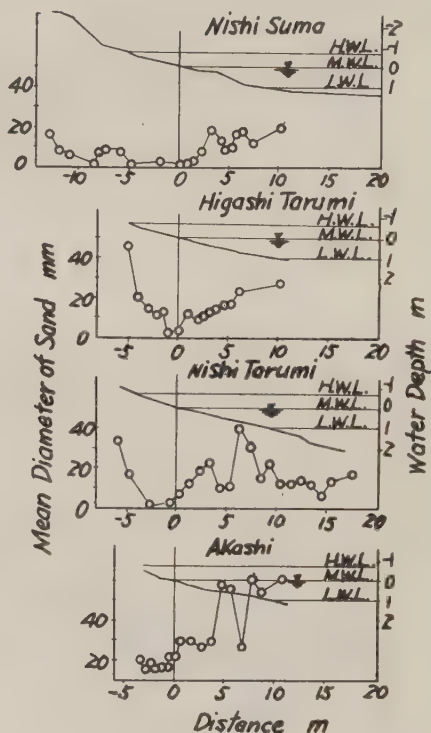 Nishi Suma
-2
H.W.L. -1
M.W.L. 0
L.W.L. 1
40
20
0
-10 -5 0 5 10 15 20
Higashi Tarumi
H.W.L. -1
M.W.L. 0
L.W.L. 1
2
40
20
0
-5 0 5 10 15 20
Nishi Tarumi
H.W.L. -1
M.W.L. 0
L.W.L. 1
2
40
20
0
-5 0 5 10 15 20
Akashi
H.W.L. -1
M.W.L. 0
L.W.L. 1
2
40
20
-5 0 5 10 15 20
Distance m
Mean Diameter of Sand mm
Water Depth m